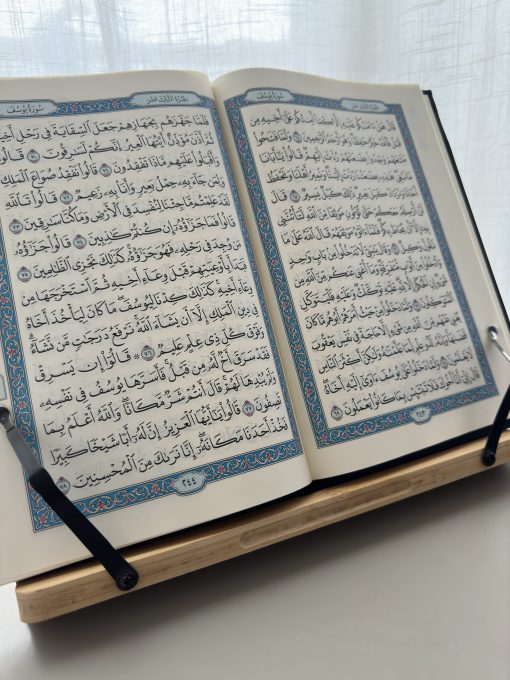 الجُزْءُ الثَّالِثَ عَشَرَ
سُورَةُ يُوسُفَ
قَالَ هَلْ ءَامَنُكُمْ عَلَيْهِ إِلَّا كَمَآ أَمِنتُكُمْ عَلَىٰٓ أَخِيهِ مِن
قَبْلُ فَٱللَّهُ خَيْرٌ حَٰفِظًا ۖ وَهُوَ أَرْحَمُ ٱلرَّٰحِمِينَ ٦٤ وَلَمَّا فَتَحُوا۟
مَتَٰعَهُمْ وَجَدُوا۟ بِضَٰعَتَهُمْ رُدَّتْ إِلَيْهِمْ ۖ قَالُوا۟ يَٰٓأَبَانَا مَا
نَبْغِى ۖ هَٰذِهِۦ بِضَٰعَتُنَا رُدَّتْ إِلَيْنَا ۖ وَنَمِيرُ أَهْلَنَا وَنَحْفَظُ
أَخَانَا وَنَزْدَادُ كَيْلَ بَعِيرٍ ۖ ذَٰلِكَ كَيْلٌ يَسِيرٌ ٦٥ قَالَ
لَنْ أُرْسِلَهُۥ مَعَكُمْ حَتَّىٰ تُؤْتُونِ مَوْثِقًا مِّنَ ٱللَّهِ لَتَأْتُنَّنِى
بِهِۦٓ إِلَّآ أَن يُحَاطَ بِكُمْ ۖ فَلَمَّآ ءَاتَوْهُ مَوْثِقَهُمْ قَالَ ٱللَّهُ عَلَىٰ مَا
نَقُولُ وَكِيلٌ ٦٦ وَقَالَ يَٰبَنِىَّ لَا تَدْخُلُوا۟ مِنۢ بَابٍ وَٰحِدٍ
وَٱدْخُلُوا۟ مِنْ أَبْوَٰبٍ مُّتَفَرِّقَةٍ ۖ وَمَآ أُغْنِى عَنكُم مِّنَ ٱللَّهِ مِن
شَىْءٍ ۖ إِنِ ٱلْحُكْمُ إِلَّا لِلَّهِ ۖ عَلَيْهِ تَوَكَّلْتُ ۖ وَعَلَيْهِ فَلْيَتَوَكَّلِ
ٱلْمُتَوَكِّلُونَ ٦٧ وَلَمَّا دَخَلُوا۟ مِنْ حَيْثُ أَمَرَهُمْ أَبُوهُم مَّا كَانَ
يُغْنِى عَنْهُم مِّنَ ٱللَّهِ مِن شَىْءٍ إِلَّا حَاجَةً فِى نَفْسِ يَعْقُوبَ
قَضَىٰهَا ۚ وَإِنَّهُۥ لَذُو عِلْمٍ لِّمَا عَلَّمْنَٰهُ وَلَٰكِنَّ أَكْثَرَ ٱلنَّاسِ
لَا يَعْلَمُونَ ٦٨ وَلَمَّا دَخَلُوا۟ عَلَىٰ يُوسُفَ ءَاوَىٰٓ إِلَيْهِ أَخَاهُ ۖ
قَالَ إِنِّىٓ أَنَا۠ أَخُوكَ فَلَا تَبْتَئِسْ بِمَا كَانُوا۟ يَعْمَلُونَ ٦٩
٢٤٣
الجُزْءُ الثَّالِثَ عَشَرَ
سُورَةُ يُوسُفَ
فَلَمَّا جَهَّزَهُم بِجَهَازِهِمْ جَعَلَ ٱلسِّقَايَةَ فِى رَحْلِ
ثُمَّ أَذَّنَ مُؤَذِّنٌ أَيَّتُهَا ٱلْعِيرُ إِنَّكُمْ لَسَٰرِقُونَ ٧٠ قَالُوا۟
وَأَقْبَلُوا۟ عَلَيْهِم مَّاذَا تَفْقِدُونَ ٧١ قَالُوا۟ نَفْقِدُ صُوَاعَ ٱلْمَلِكِ
وَلِمَن جَآءَ بِهِۦ حِمْلُ بَعِيرٍ وَأَنَا۠ بِهِۦ زَعِيمٌ ٧٢ قَالُوا۟ تَٱللَّهِ
لَقَدْ عَلِمْتُم مَّا جِئْنَا لِنُفْسِدَ فِى ٱلْأَرْضِ وَمَا كُنَّا سَٰرِقِينَ ٧٣
قَالُوا۟ فَمَا جَزَٰٓؤُهُۥٓ إِن كُنتُمْ كَٰذِبِينَ ٧٤ قَالُوا۟ جَزَٰٓؤُهُۥ
مَن وُجِدَ فِى رَحْلِهِۦ فَهُوَ جَزَٰٓؤُهُۥ ۚ كَذَٰلِكَ نَجْزِى ٱلظَّٰلِمِينَ ٧٥
فَبَدَأَ بِأَوْعِيَتِهِمْ قَبْلَ وِعَآءِ أَخِيهِ ثُمَّ ٱسْتَخْرَجَهَا مِن
وِعَآءِ أَخِيهِ ۚ كَذَٰلِكَ كِدْنَا لِيُوسُفَ ۖ مَا كَانَ لِيَأْخُذَ أَخَاهُ
فِى دِينِ ٱلْمَلِكِ إِلَّآ أَن يَشَآءَ ٱللَّهُ ۚ نَرْفَعُ دَرَجَٰتٍ مَّن نَّشَآءُ ۗ
وَفَوْقَ كُلِّ ذِى عِلْمٍ عَلِيمٌ ٧٦ ۞ قَالُوٓا۟ إِن يَسْرِقْ
فَقَدْ سَرَقَ أَخٌ لَّهُۥ مِن قَبْلُ ۚ فَأَسَرَّهَا يُوسُفُ فِى نَفْسِهِۦ
وَلَمْ يُبْدِهَا لَهُمْ ۚ قَالَ أَنتُمْ شَرٌّ مَّكَانًا ۖ وَٱللَّهُ أَعْلَمُ بِمَا
تَصِفُونَ ٧٧ قَالُوا۟ يَٰٓأَيُّهَا ٱلْعَزِيزُ إِنَّ لَهُۥٓ أَبًا شَيْخًا كَبِيرًا
فَخُذْ أَحَدَنَا مَكَانَهُۥٓ ۖ إِنَّا نَرَىٰكَ مِنَ ٱلْمُحْسِنِينَ ٧٨
٢٤٤